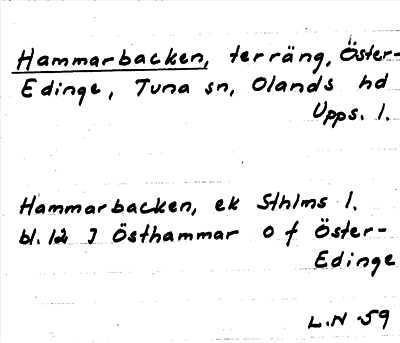 Hammarbacken, terräng, Öster-
Edinge, Tuna sn, Olands hd
Upps. l.
Hammarbacken, ek Sthlms l.
bl. 12 J Östhammar o f Öster-
Edinge
L.N. 59